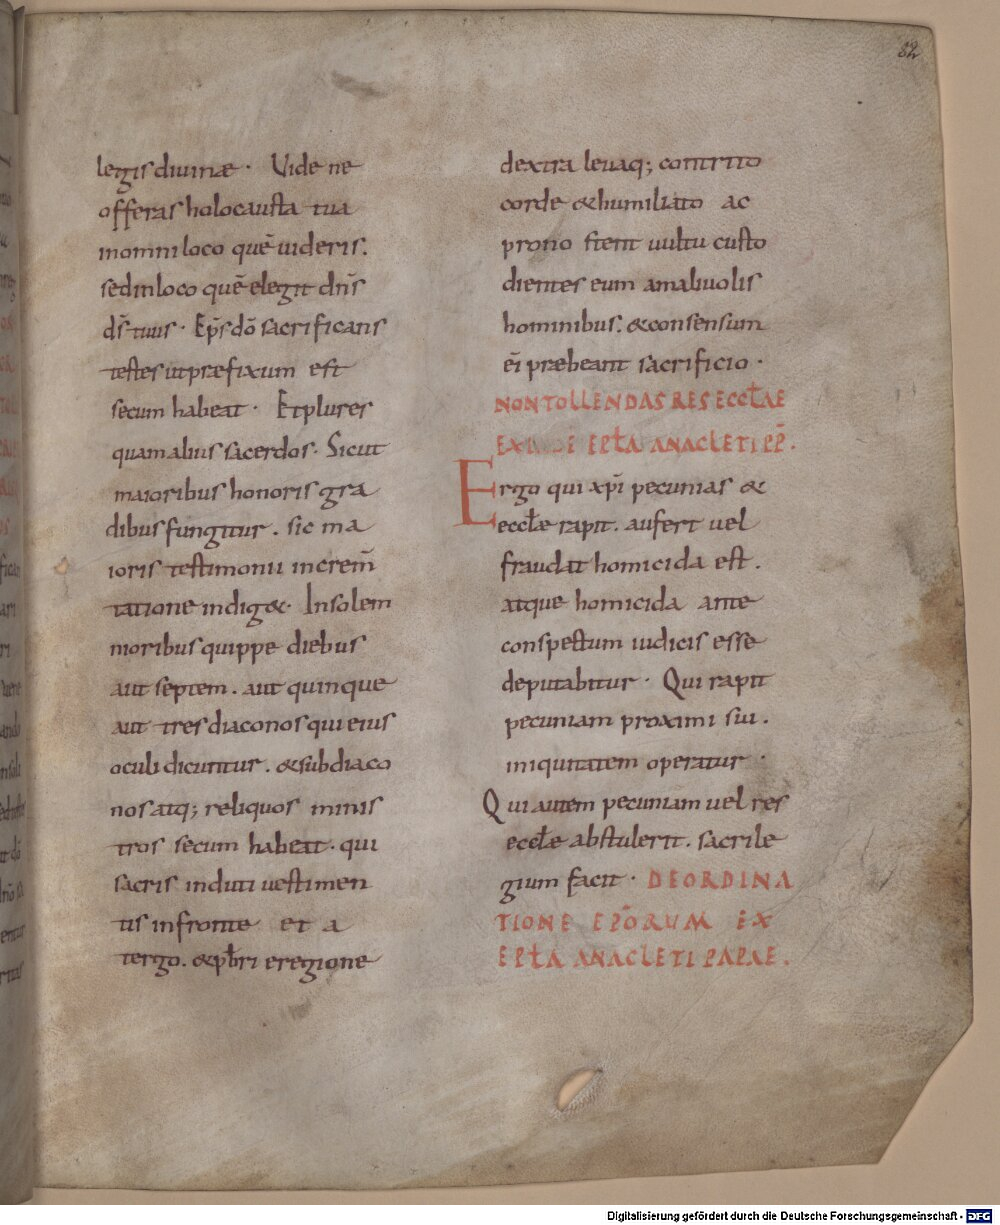 82
legis diuinae · Vide ne
offeras holocausta tua
inomni loco quē uideris.
sedinloco quē elegit dn̄s
ds̄ tuus · Ep̄s dō sacrificans
testes utpraefixum est
secum habeat · Et plures
quam alius sacerdos · Sicut
maioribus honoris gra
dibus fungitur . sic ma
ioris testimonii increm̄
tatione indig& · Insolem
nioribus quippe diebus
aut septem . aut quinque
aut tres diaconos qui eius
oculi dicuntur . &subdiaco
nos atq; reliquos minis
tros secum habeat · qui
sacris induti uestimen
tis infronte et a
tergo . &pƀri eregione
dextra leuaq; contrito
corde &humiliato ac
prono stent uultu custo
dientes eum amaliuolis
hominibus . &consensum
ei praebeant sacrificio ·
NON TOLLENDAS RES ECCŁAE
EPŁA ANACLETI PP̄ .
Ergo qui xp̄i pecunias &
eccłe rapit . aufert uel
fraudat homicida est .
atque homicida ante
conspectum iudicis esse
deputabitur · Qui rapit
pecuniam proximi sui .
iniquitatem operatur ·
Qui autem pecuniam uel res
eccłae abstulerit . sacrile
gium facit · DE ORDINA
TIONE EP̄ORUM EX
EPŁA ANACLETI PAPAE .
Digitalisierung gefördert durch die Deutsche Forschungsgemeinschaft - DFG